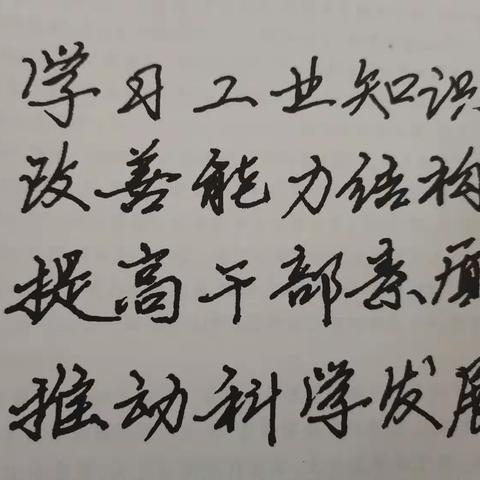 学习工业知识
改善能力结构
提高干部素质
推动科学发展